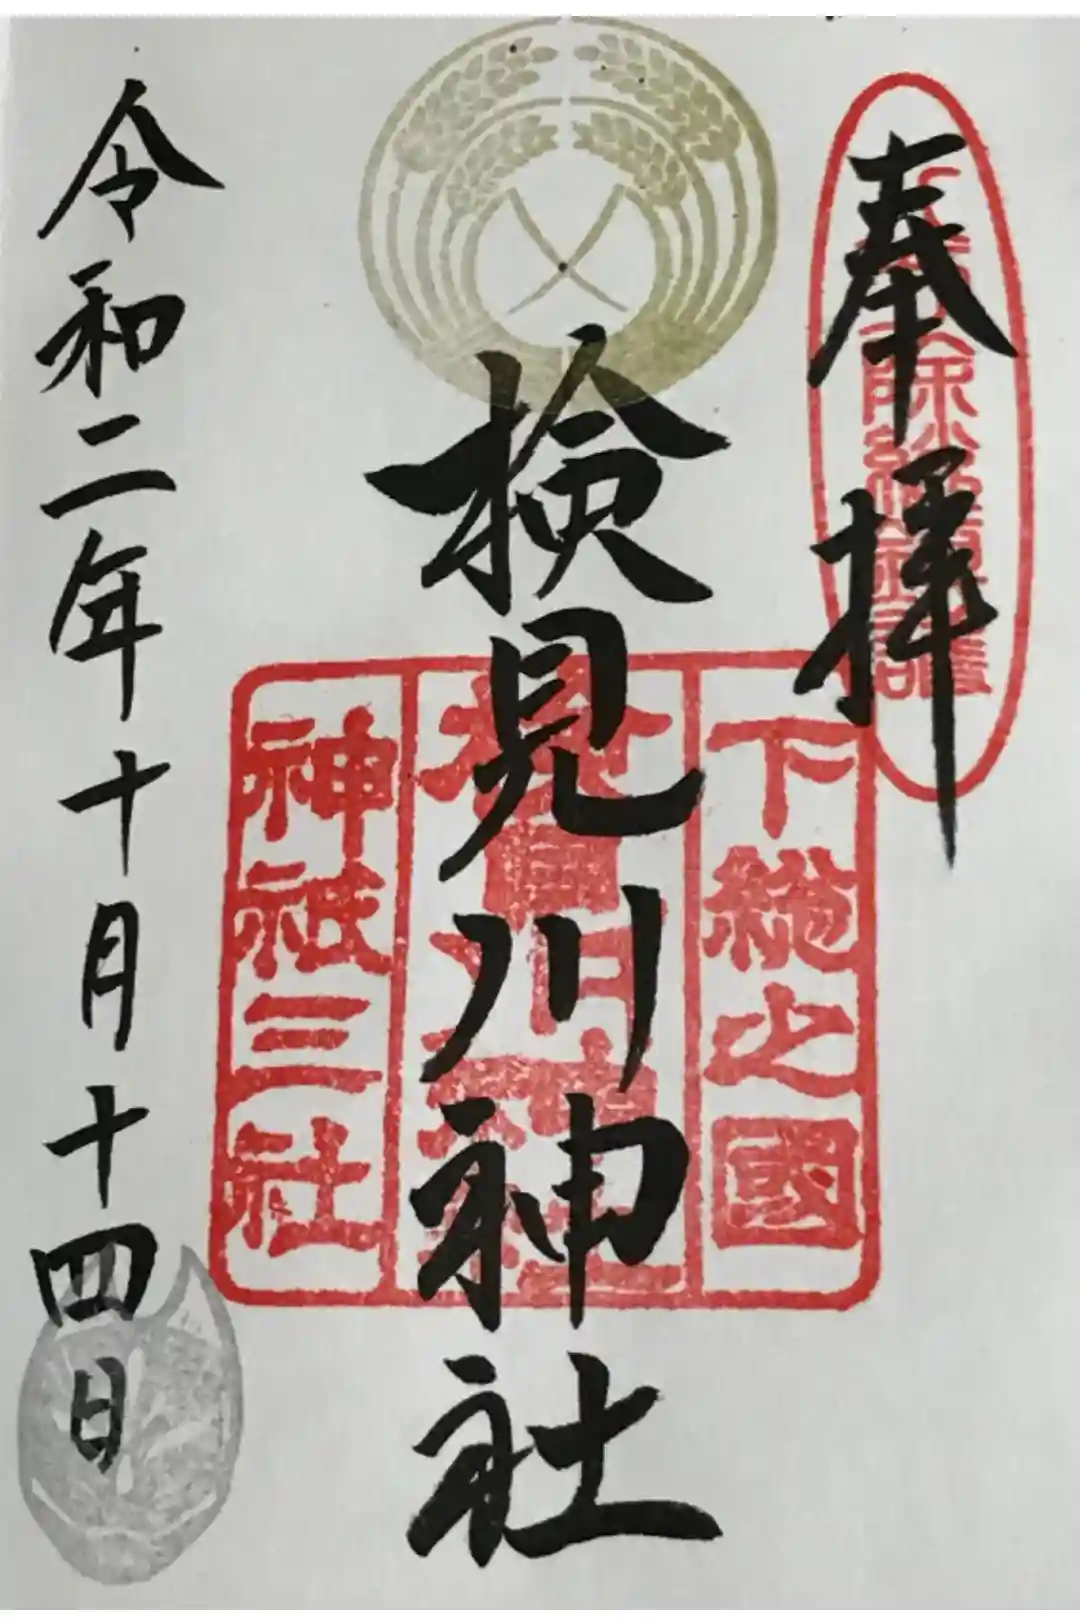 奉拝
下総之國
検見川神社
神祇三社
令和二年十月十四日